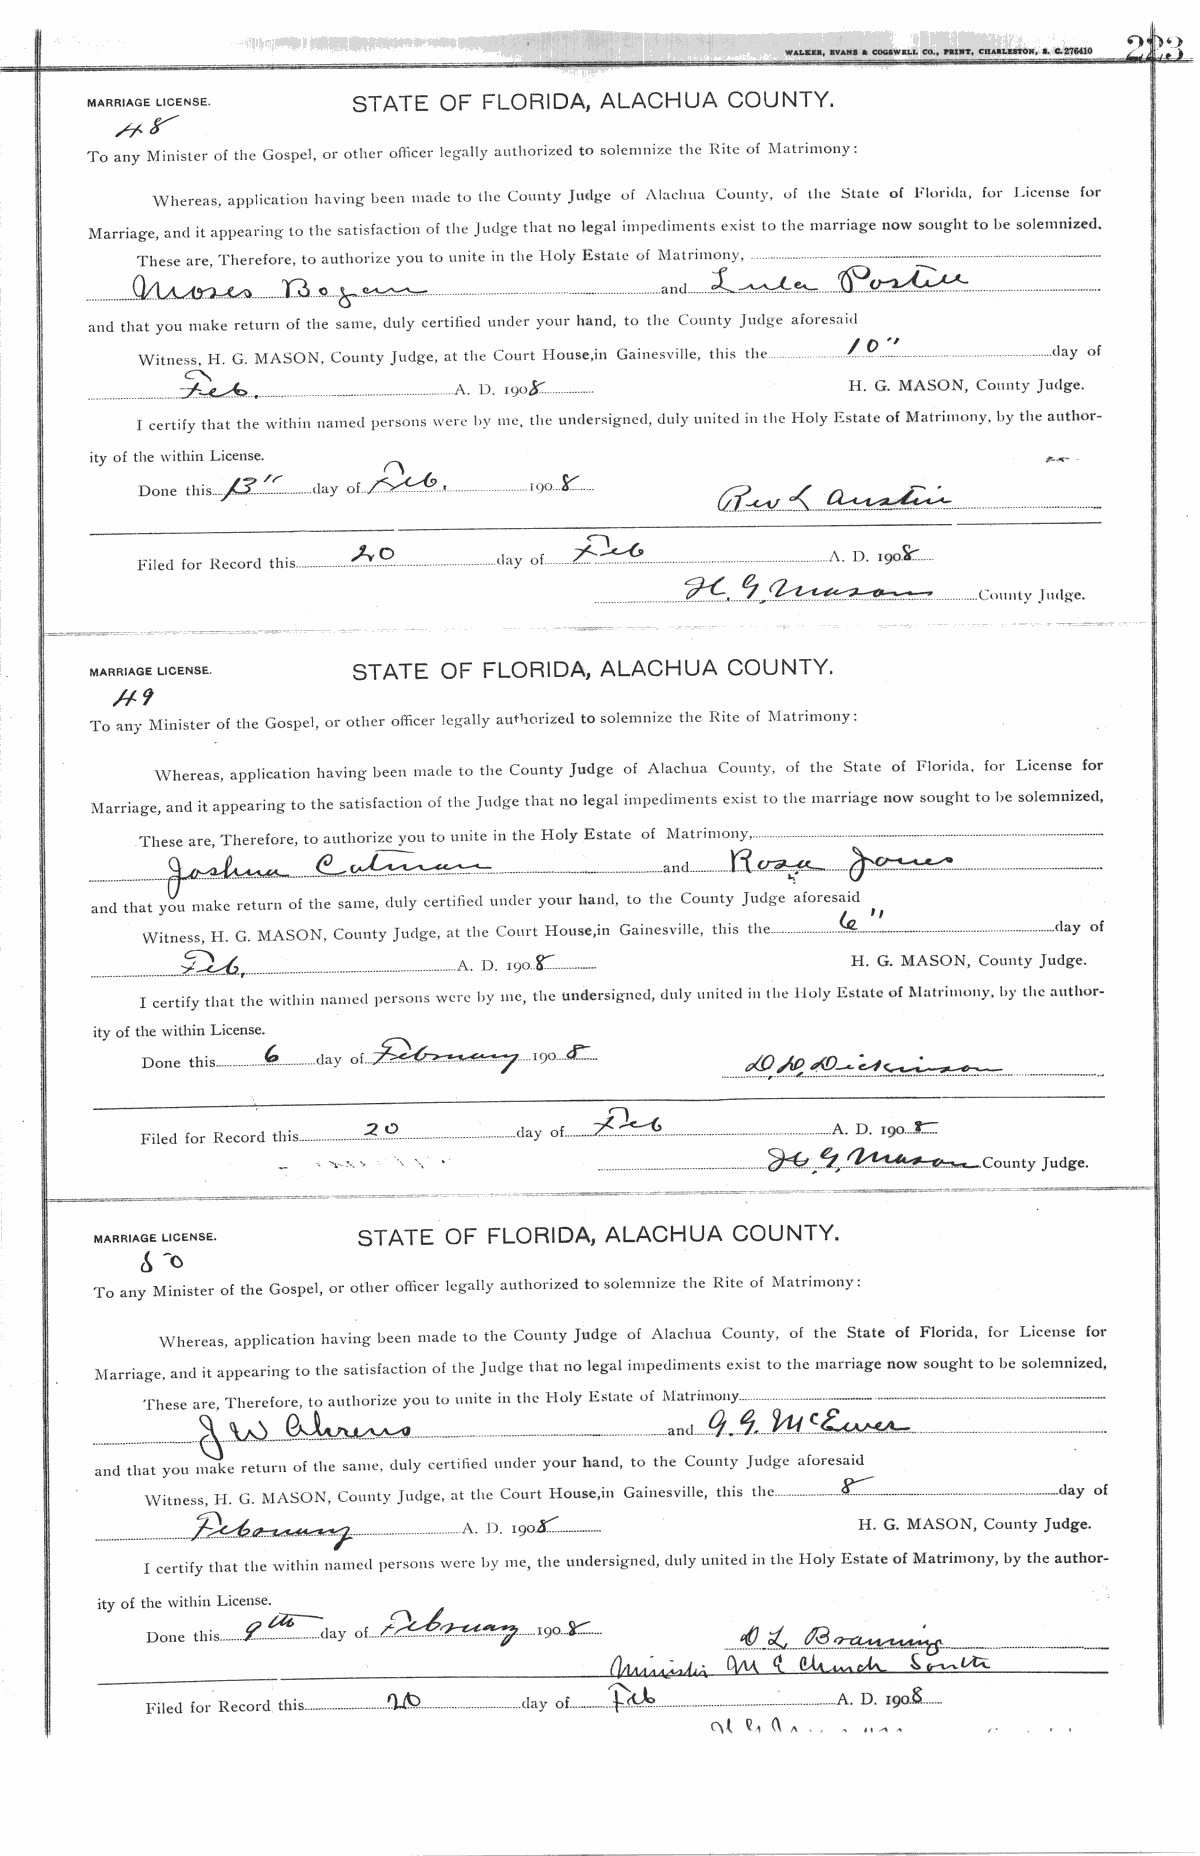 WALKER, EVANS & COGSWELL CO., PRINT, CHARLESTON, S. C. 276410 223
MARRIAGE LICENSE. STATE OF FLORIDA, ALACHUA COUNTY.
48
To any Minister of the Gospel, or other officer legally authorized to solemnize the Rite of Matrimony:
Whereas, application having been made to the County Judge of Alachua County, of the State of Florida, for License for
Marriage, and it appearing to the satisfaction of the Judge that no legal impediments exist to the marriage now sought to be solemnized.
These are, Therefore, to authorize you to unite in the Holy Estate of Matrimony,
Moses Bogan and Lula Postell
and that you make return of the same, duly certified under your hand, to the County Judge aforesaid
Witness, H. G. MASON, County Judge, at the Court House,in Gainesville, this the 10" day of
Feb. A. D. 1908 H. G. MASON, County Judge.
I certify that the within named persons were by me, the undersigned, duly united in the Holy Estate of Matrimony, by the author-
ity of the within License.
Done this 13" day of Feb. 1908
Rev L Austin
Filed for Record this 20 day of Feb A. D. 1908
H. G. Mason County Judge.
MARRIAGE LICENSE. STATE OF FLORIDA, ALACHUA COUNTY.
49
To any Minister of the Gospel, or other officer legally authorized to solemnize the Rite of Matrimony:
Whereas, application having been made to the County Judge of Alachua County, of the State of Florida, for License for
Marriage, and it appearing to the satisfaction of the Judge that no legal impediments exist to the marriage now sought to be solemnized,
These are, Therefore, to authorize you to unite in the Holy Estate of Matrimony,
Joshua Catman and Rosa Jones
and that you make return of the same, duly certified under your hand, to the County Judge aforesaid
Witness, H. G. MASON, County Judge, at the Court House,in Gainesville, this the 6" day of
Feb. A. D. 1908 H. G. MASON, County Judge.
I certify that the within named persons were by me, the undersigned, duly united in the Holy Estate of Matrimony, by the author-
ity of the within License.
Done this 6 day of February 1908
D. D. Dickinson
Filed for Record this 20 day of Feb A. D. 1908
H. G. Mason County Judge.
MARRIAGE LICENSE. STATE OF FLORIDA, ALACHUA COUNTY.
50
To any Minister of the Gospel, or other officer legally authorized to solemnize the Rite of Matrimony:
Whereas, application having been made to the County Judge of Alachua County, of the State of Florida, for License for
Marriage, and it appearing to the satisfaction of the Judge that no legal impediments exist to the marriage now sought to be solemnized,
These are, Therefore, to authorize you to unite in the Holy Estate of Matrimony
J W Ahrens and G. G. McEwer
and that you make return of the same, duly certified under your hand, to the County Judge aforesaid
Witness, H. G. MASON, County Judge, at the Court House,in Gainesville, this the 8 day of
February A. D. 1908 H. G. MASON, County Judge.
I certify that the within named persons were by me, the undersigned, duly united in the Holy Estate of Matrimony, by the author-
ity of the within License.
Done this 9th day of February 1908
D L Branning
Minister M E Church South
Filed for Record this 20 day of Feb A. D. 1908